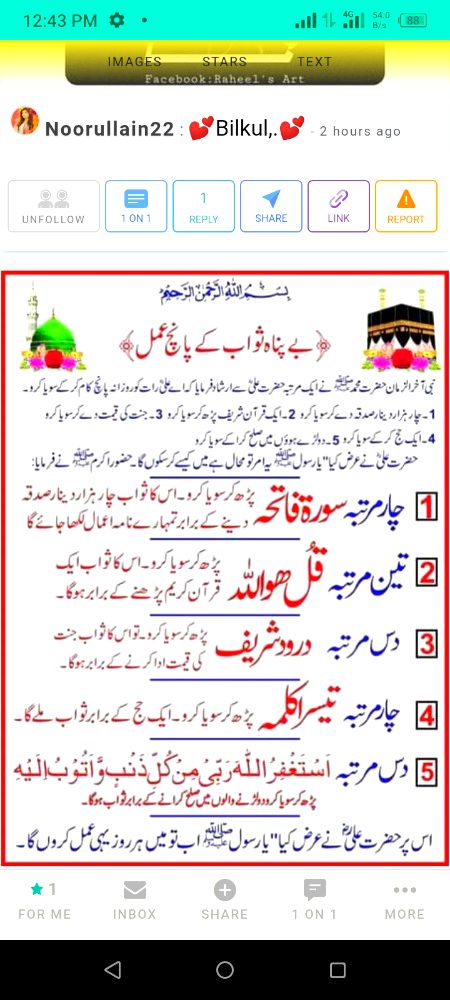 12:43 PM
4G
54.0 B/s
88
IMAGES STARS TEXT
Facebook:Raheel's Art
Noorullain22 : 💕Bilkul,.💕 - 2 hours ago
UNFOLLOW
1 ON 1
1
REPLY
SHARE
LINK
REPORT
بِسْمِ اللهِ الرَّحْمٰنِ الرَّحِيْمِ
بے پناہ ثواب کے پانچ عمل
نبی آخر الزمان حضرت محمد ﷺ نے ایک مرتبہ حضرت علیؓ سے ارشاد فرمایا کہ اے علی رات کو روزانہ پانچ کام کر کے سویا کرو۔
1۔ چار ہزار دینار صدقہ دے کر سویا کرو 2۔ ایک قرآن شریف پڑھ کر سویا کرو 3۔ جنت کی قیمت دے کر سویا کرو
4۔ ایک حج کر کے سویا کرو 5۔ دو لڑے ہوؤں میں صلح کرا کے سویا کرو
حضرت علیؓ نے عرض کیا "یا رسول ﷺ یہ امر تو محال ہے میں کیسے کر سکوں گا۔ حضور اکرم ﷺ نے فرمایا:
1 چار مرتبہ سورۃ فاتحہ پڑھ کر سویا کرو۔ اس کا ثواب چار ہزار دینار صدقہ
دینے کے برابر تمہارے نامہ اعمال لکھا جائے گا
2 تین مرتبہ قُل ھو اللہ پڑھ کر سویا کرو۔ اس کا ثواب ایک
قرآن کریم پڑھنے کے برابر ہوگا۔
3 دس مرتبہ درود شریف پڑھ کر سویا کرو۔ تو اس کا ثواب جنت
کی قیمت ادا کرنے کے برابر ہوگا۔
4 چار مرتبہ تیسرا کلمہ پڑھ کر سویا کرو۔ ایک حج کے برابر ثواب ملے گا۔
5 دس مرتبہ اَسْتَغْفِرُ اللّٰهَ رَبِّیْ مِنْ كُلِّ ذَنْبٍ وَّاَتُوْبُ اِلَيْهِ
پڑھ کر سویا کرو دو لڑنے والوں میں صلح کرانے کے برابر ثواب ہوگا۔
اس پر حضرت علیؓ نے عرض کیا "یا رسول ﷺ اب تو میں ہر روز یہی عمل کروں گا۔
1
FOR ME
INBOX
SHARE
1 ON 1
MORE